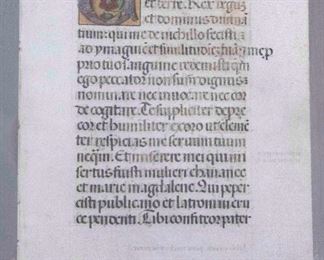 et terre. Rex regum
et dominus dominan
tium: qui me de nichillo fecisti
ad ymaginē et similitudinē tuam: et me p
prio tuo sanguine redemisti: quem
ego peccator non sum dignus no
minare nec inuocare nec cor
de cogitare. Te suppliciter depre
cor et humiliter exoro ut clemen
ter respicias me seruum tuum
neq̄uū. Et miserere mei qui mi
sertus fuisti mulieri chananee
et marie magdalene: Qui peper
cisti publicano et latroni in cru
ce pendenti. Tibi confiteor pater